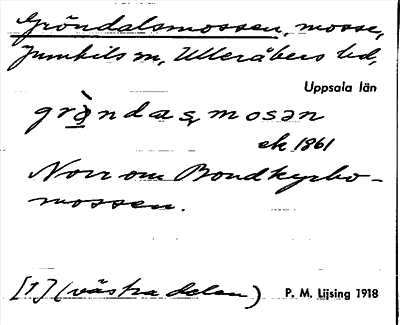 Gröndalsmossen, mosse,
Jumkils sn, Ulleråkers hd,
Uppsala län
grö̀ndasmosən
ek 1861
Norr om Bondkyrko-
mossen.
[1] (västra delen) P. M. Lijsing 1918